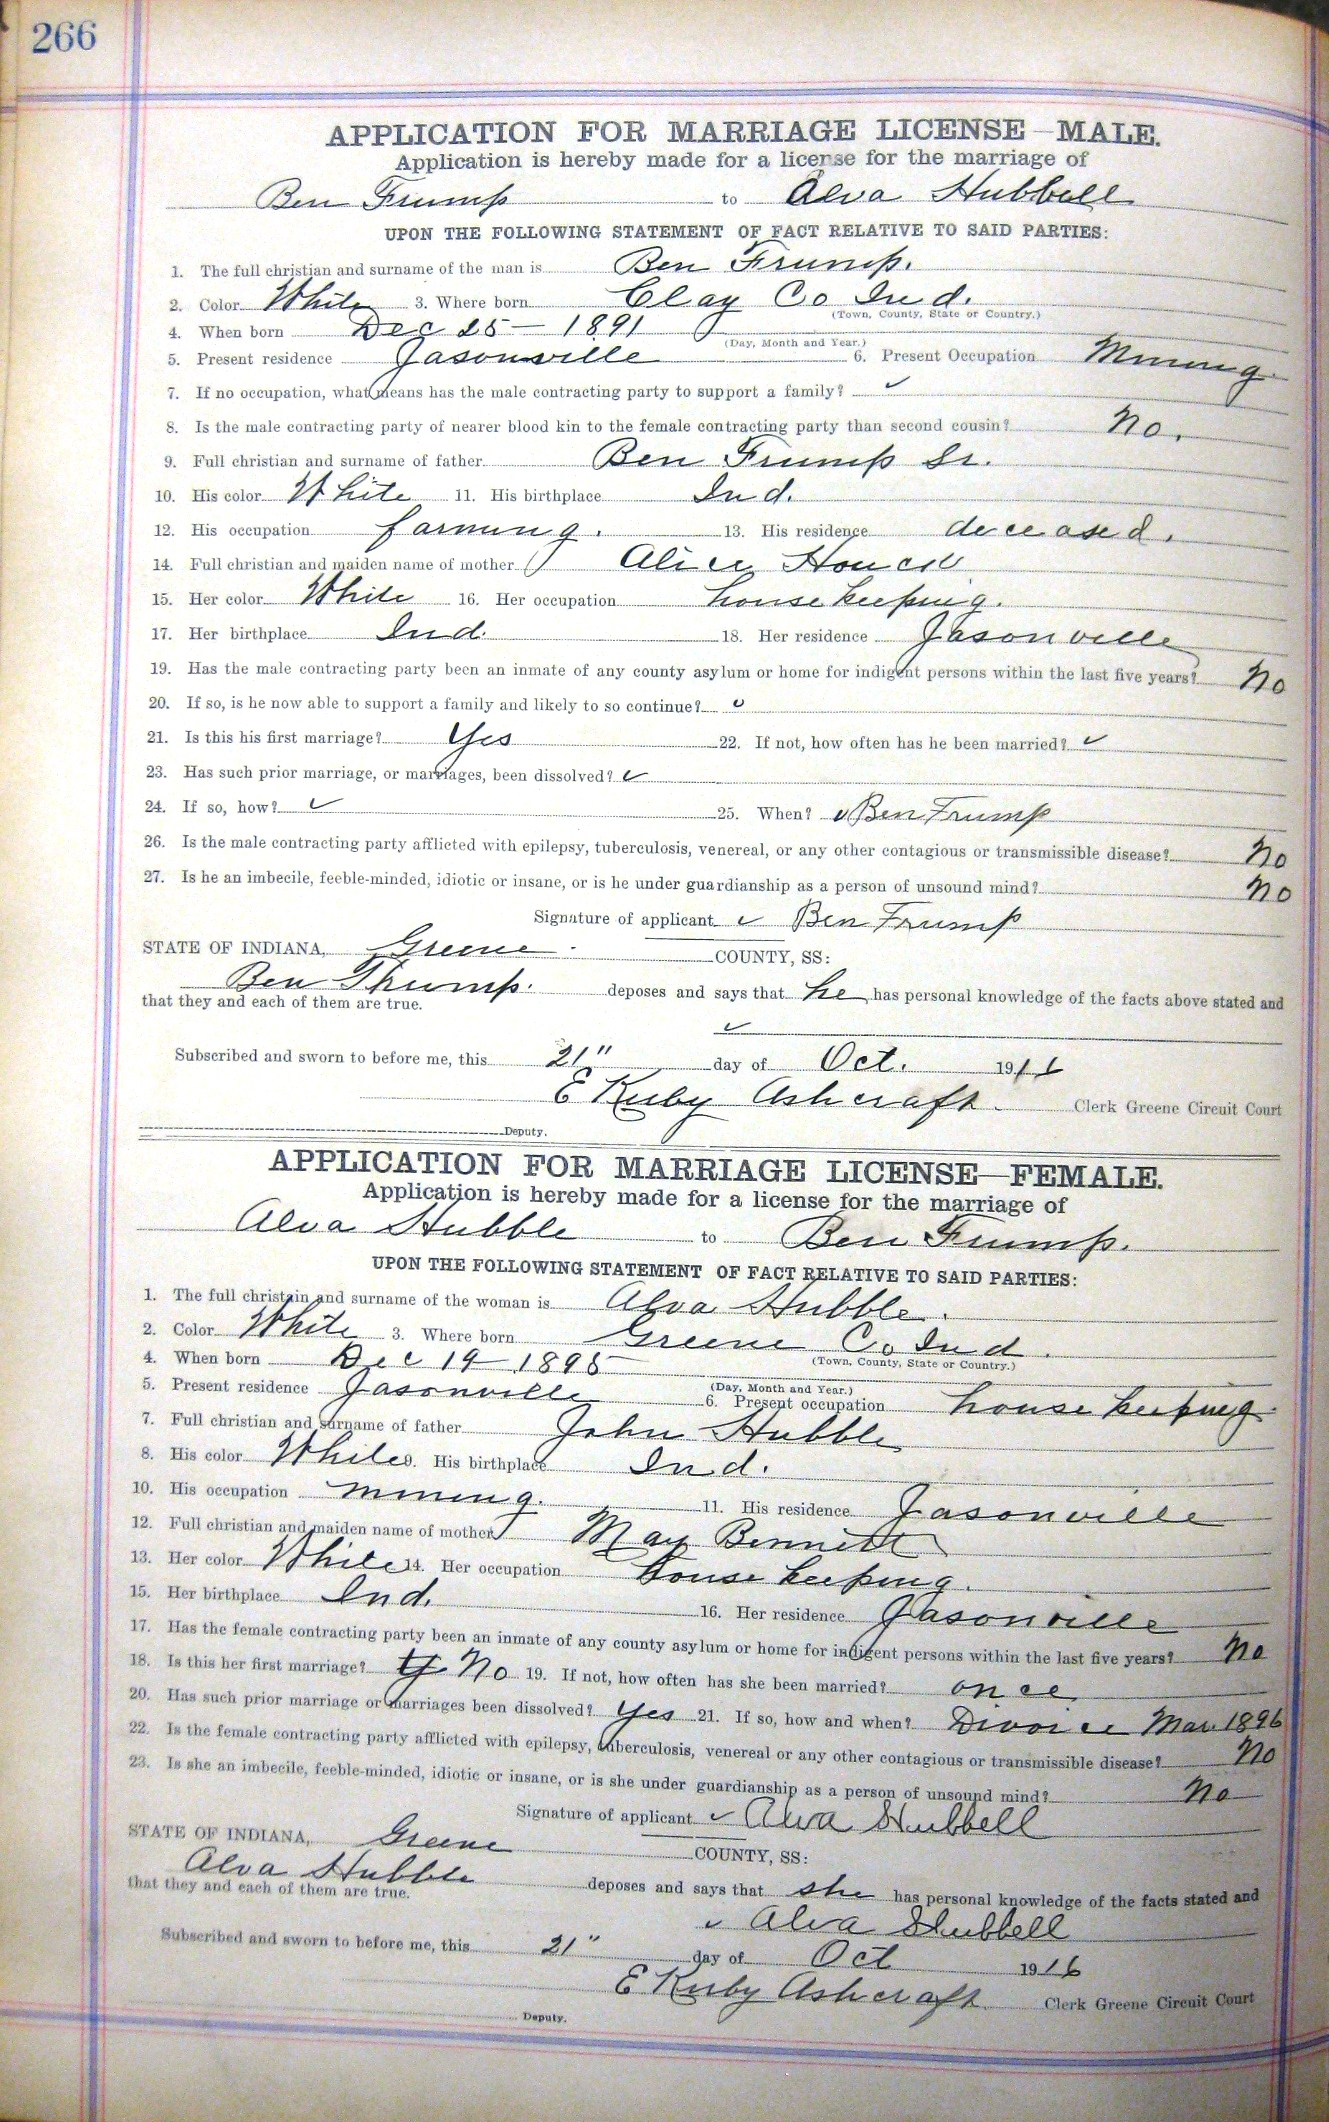 266
APPLICATION FOR MARRIAGE LICENSE—MALE.
Application is hereby made for a license for the marriage of
Ben Frump to Alva Hubbell
UPON THE FOLLOWING STATEMENT OF FACT RELATIVE TO SAID PARTIES:
1. The full christian and surname of the man is Ben Frump.
2. Color White 3. Where born Clay Co Ind.
(Town, County, State or Country.)
4. When born Dec 25 - 1891
(Day, Month and Year.)
5. Present residence Jasonville 6. Present Occupation Mining
7. If no occupation, what means has the male contracting party to support a family? ✓
8. Is the male contracting party of nearer blood kin to the female contracting party than second cousin? No.
9. Full christian and surname of father Ben Frump Sr.
10. His color White 11. His birthplace Ind.
12. His occupation farming. 13. His residence deceased.
14. Full christian and maiden name of mother Alice Houck
15. Her color White 16. Her occupation house keeping.
17. Her birthplace Ind. 18. Her residence Jasonville
19. Has the male contracting party been an inmate of any county asylum or home for indigent persons within the last five years? No
20. If so, is he now able to support a family and likely to so continue? ✓
21. Is this his first marriage? Yes 22. If not, how often has he been married? ✓
23. Has such prior marriage, or marriages, been dissolved? ✓
24. If so, how? ✓ 25. When? ✓ Ben Frump
26. Is the male contracting party afflicted with epilepsy, tuberculosis, venereal, or any other contagious or transmissible disease? No
27. Is he an imbecile, feeble-minded, idiotic or insane, or is he under guardianship as a person of unsound mind? No
Signature of applicant ✓ Ben Frump
STATE OF INDIANA, Greene COUNTY, SS:
Ben Thrump. deposes and says that he has personal knowledge of the facts above stated and
that they and each of them are true.
✓
Subscribed and sworn to before me, this 21" day of Oct. 1916
E Kirby Ashcraft. Clerk Greene Circuit Court
Deputy.
APPLICATION FOR MARRIAGE LICENSE—FEMALE.
Application is hereby made for a license for the marriage of
Alva Hubble to Ben Frump.
UPON THE FOLLOWING STATEMENT OF FACT RELATIVE TO SAID PARTIES:
1. The full christain and surname of the woman is Alva Hubble.
2. Color White 3. Where born Greene Co Ind.
(Town, County, State or Country.)
4. When born Dec 19 - 1895
(Day, Month and Year.)
5. Present residence Jasonville 6. Present occupation house keeping
7. Full christian and surname of father John Hubble
8. His color White 9. His birthplace Ind.
10. His occupation mining. 11. His residence Jasonville
12. Full christian and maiden name of mother May Bennett
13. Her color White 14. Her occupation house keeping.
15. Her birthplace Ind. 16. Her residence Jasonville
17. Has the female contracting party been an inmate of any county asylum or home for indigent persons within the last five years? No
18. Is this her first marriage? No 19. If not, how often has she been married? once
20. Has such prior marriage or marriages been dissolved? Yes 21. If so, how and when? Divorce Mar. 1896
22. Is the female contracting party afflicted with epilepsy, tuberculosis, venereal or any other contagious or transmissible disease? No
23. Is she an imbecile, feeble-minded, idiotic or insane, or is she under guardianship as a person of unsound mind? No
Signature of applicant ✓ Alva Hubbell
STATE OF INDIANA, Greene COUNTY, SS:
Alva Hubble deposes and says that she has personal knowledge of the facts stated and
that they and each of them are true.
✓ Alva Hubbell
Subscribed and sworn to before me, this 21" day of Oct 1916
E Kirby Ashcraft Clerk Greene Circuit Court
Deputy.